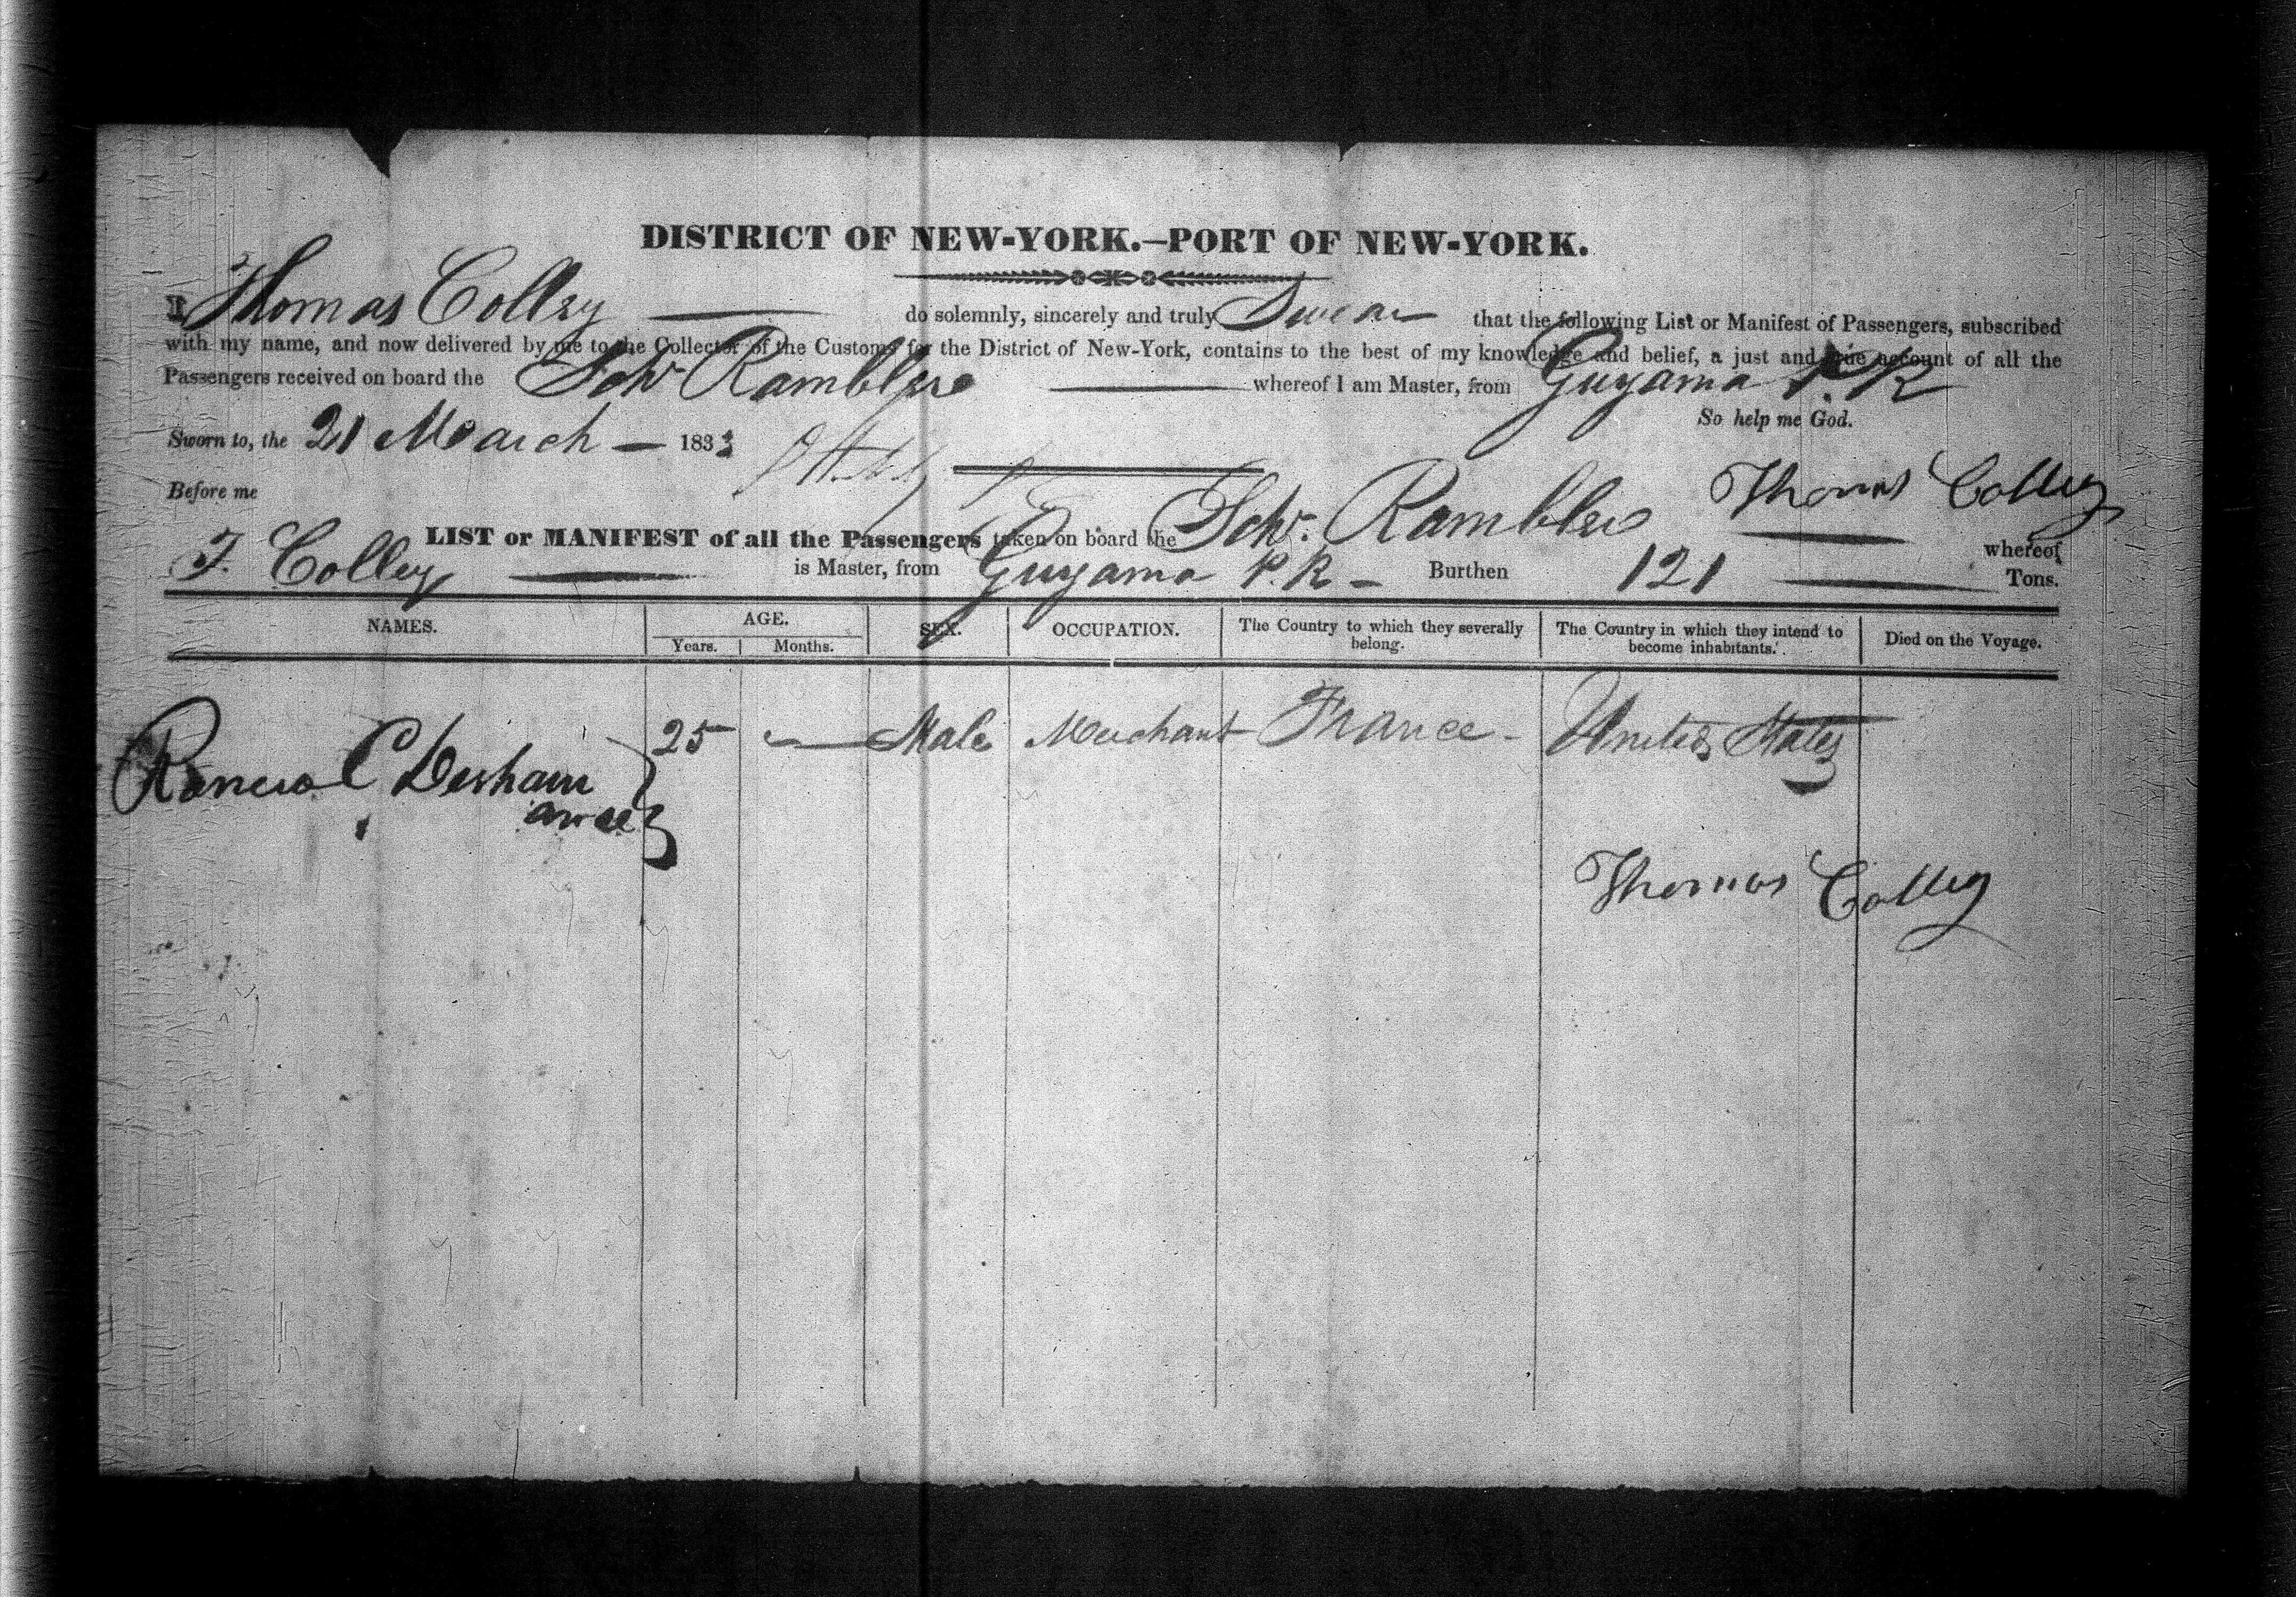 DISTRICT OF NEW-YORK.—PORT OF NEW-YORK.
I Thomas Colley do solemnly, sincerely and truly Swear that the following List or Manifest of Passengers, subscribed
with my name, and now delivered by me to the Collector of the Customs for the District of New-York, contains to the best of my knowledge and belief, a just and true account of all the
Passengers received on board the Schr Rambler whereof I am Master, from Guyama P.R
So help me God.
Sworn to, the 21 March — 1833
Thomas Colley
Before me
LIST or MANIFEST of all the Passengers taken on board the Schr. Rambler whereof
T. Colley is Master, from Guyama P.R — Burthen 121 Tons.
NAMES. AGE. SEX. OCCUPATION. The Country to which they severally belong. The Country in which they intend to become inhabitants. Died on the Voyage.
Years. Months.
25 — Male Merchant France - United States
Thomas Colley